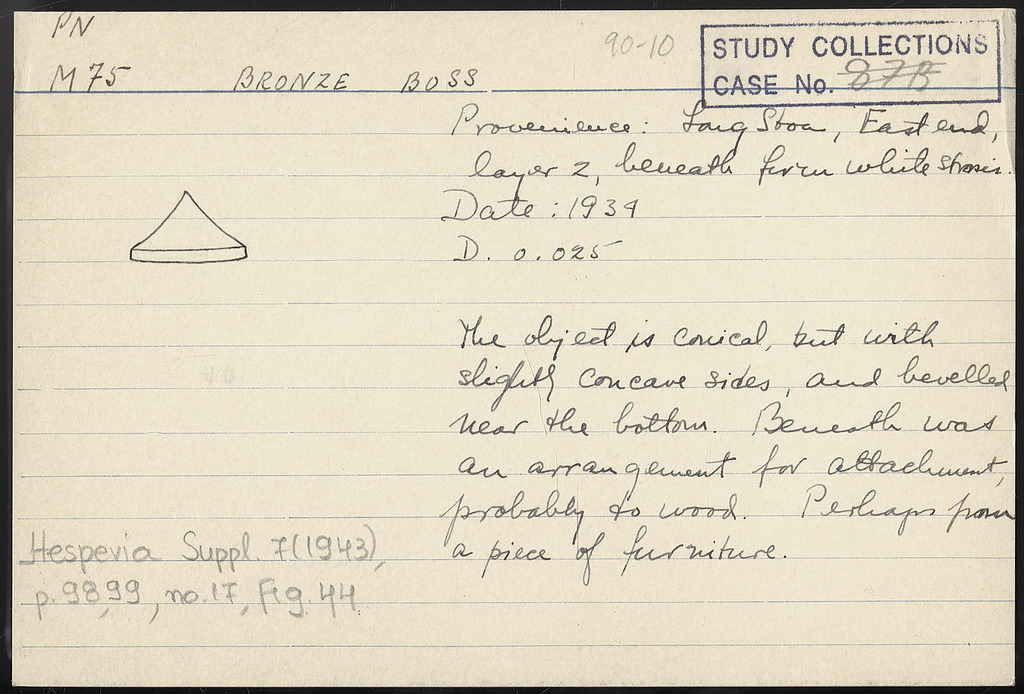 PN
90-10
STUDY COLLECTIONS
CASE No. 87B
M 75 BRONZE BOSS
Provenience: Long Stoa, East end,
layer 2, beneath firm white strosis.
Date: 1934
D. 0.025
The object is conical, but with
slightly concave sides, and bevelled
near the bottom. Beneath was
an arrangement for attachment,
probably to wood. Perhaps from
a piece of furniture.
Hesperia Suppl. 7 (1943),
p. 98,99, no. 17, Fig. 44